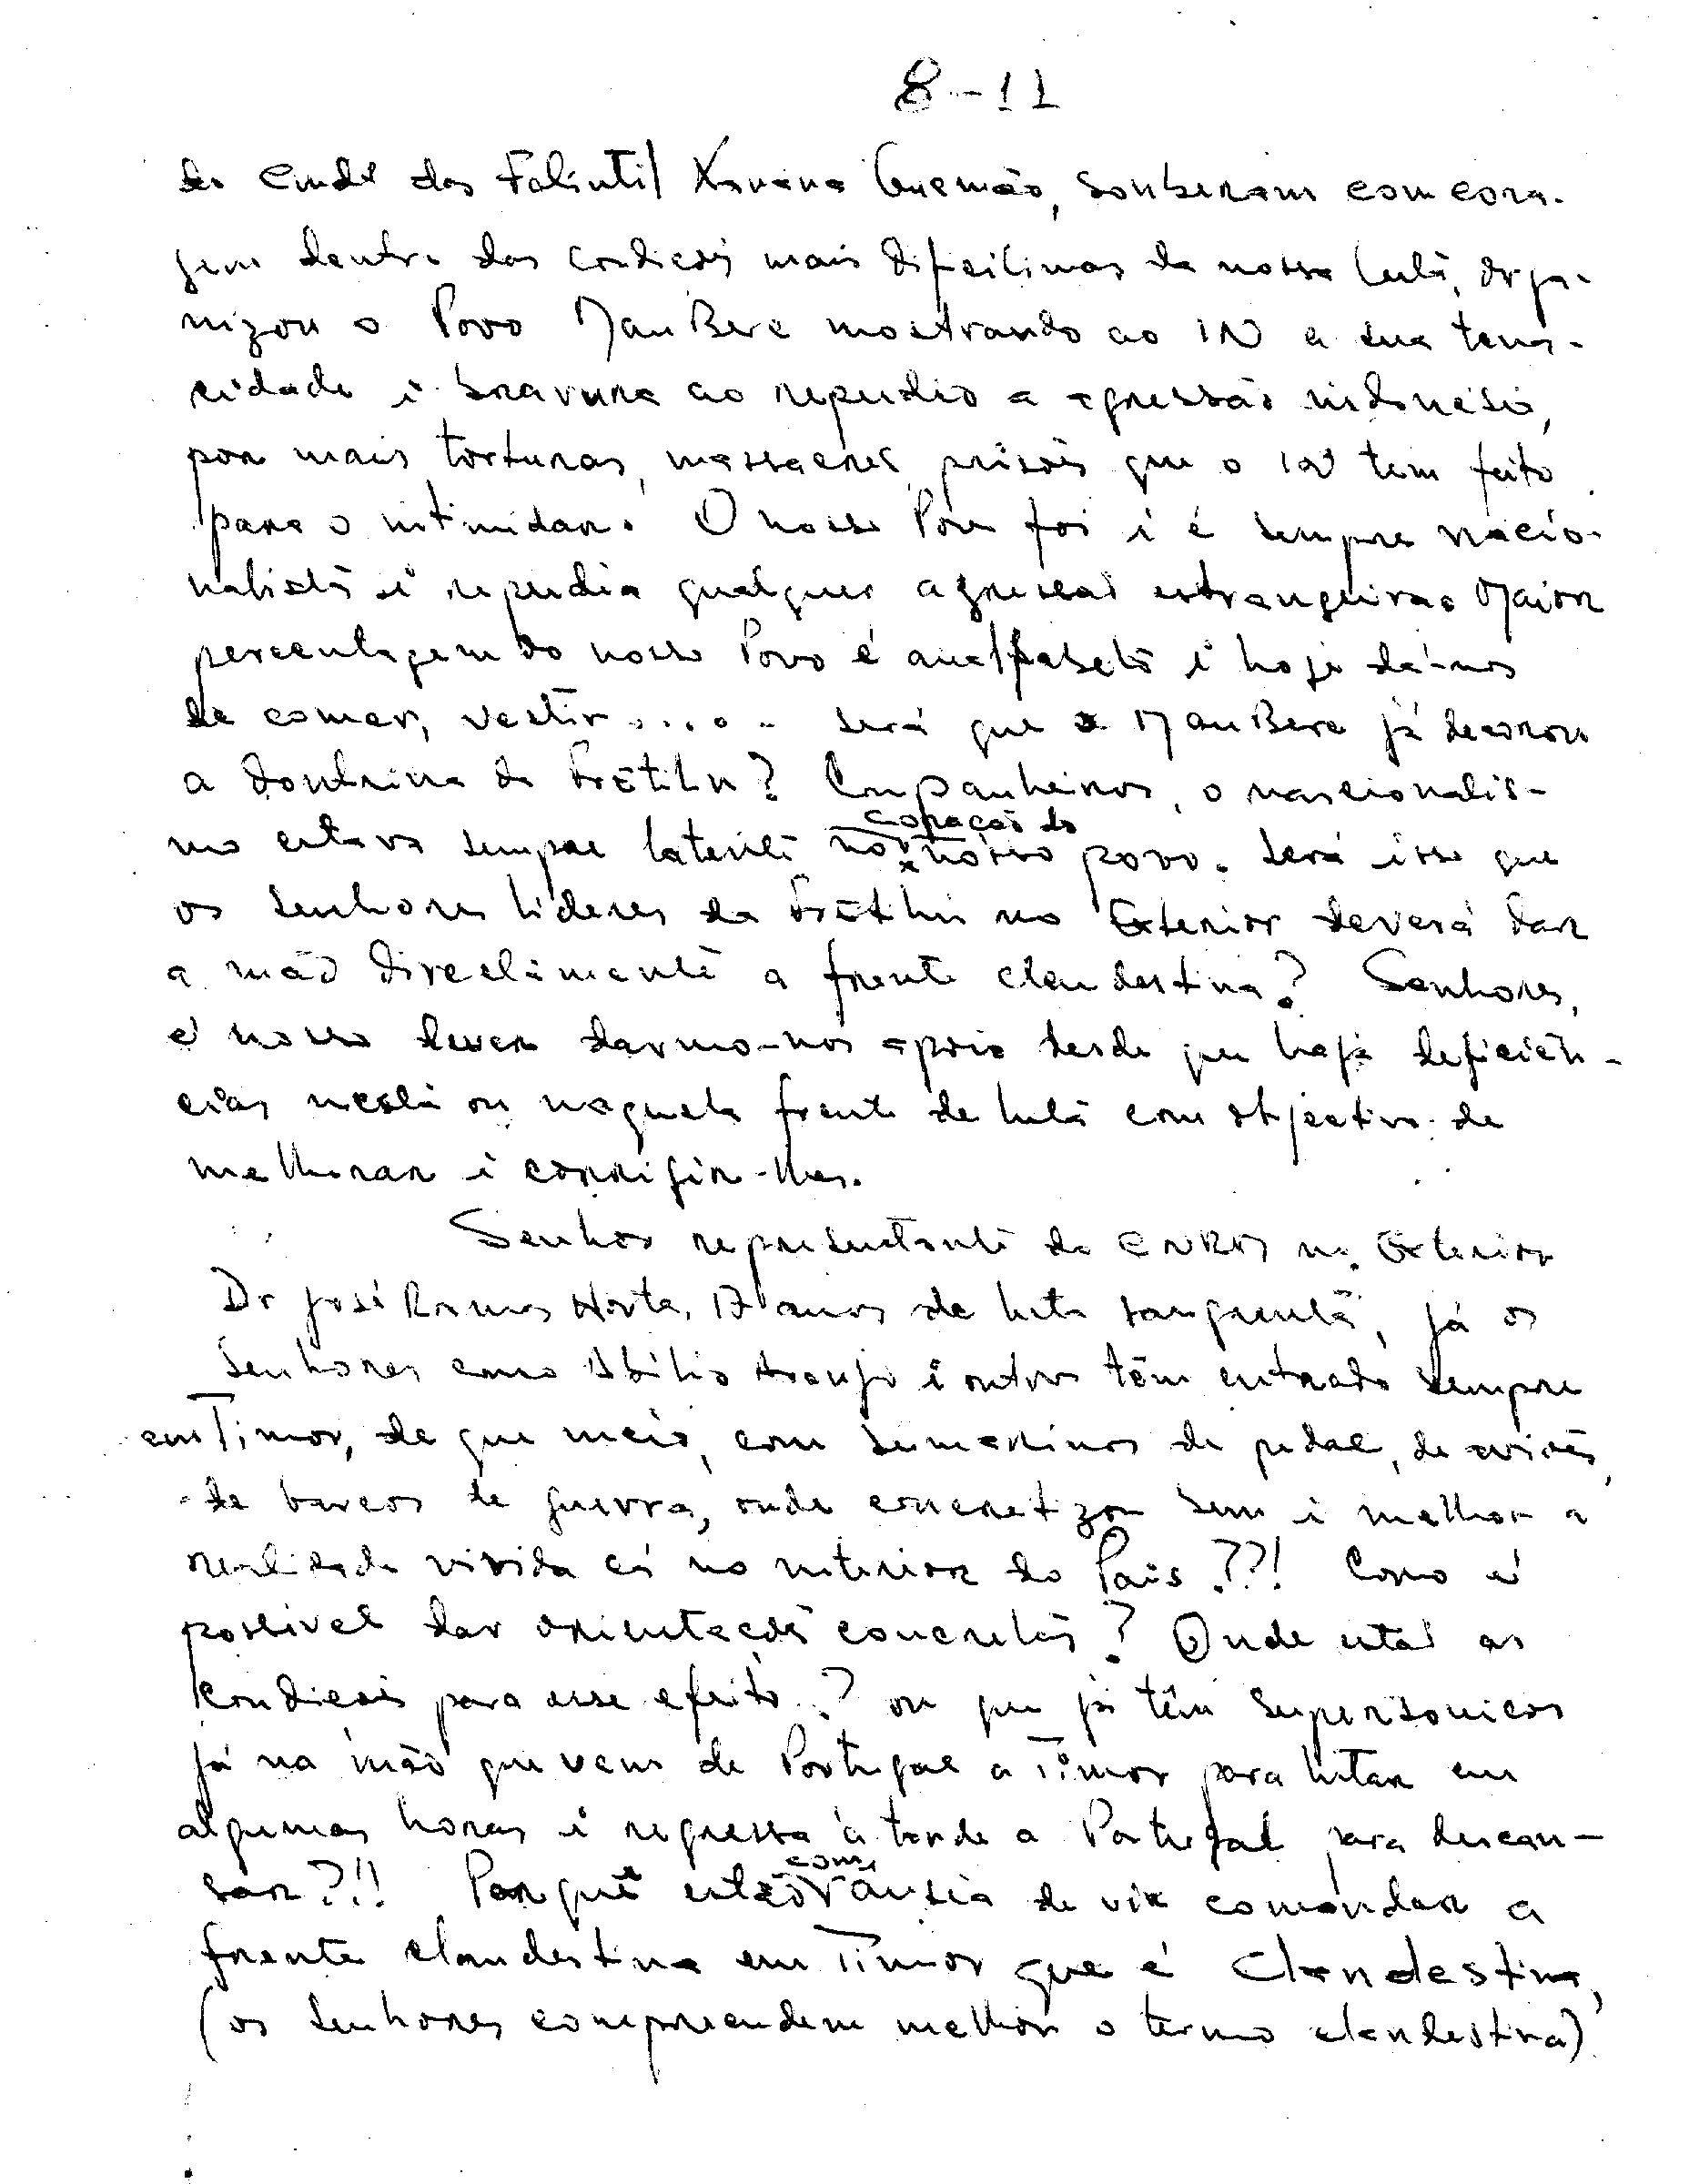 8-11
do Cmdt das Falintil Xanana Gusmão, souberam com cora-
gem dentro das condicões mais dificilimas da nossa luta, orga-
nizou o Povo MauBere mostrando ao IN a sua tena-
cidade i bravura ao repudio a agressão indonésia,
por mais torturas, massacres, prisões que o IN tem feito
para o intimidar. O nosso Povo foi i é sempre nacio-
nalista i repudia qualquer agressão estrangeira. Maior
percentagem do nosso Povo é analfabeta i hoje dá-nos
de comer, vestir..... será que o MauBere já decorou
a doutrina da Fretilin? Companheiros, o nascionalis-
mo estava sempre latente no coração do nosso povo. Será isso que
os senhores lideres da Fretilin no Exterior deverá dar
a mão directamente a frente clandestina? Senhores,
é nosso dever darmo-nos apoio desde que haja deficiên-
cias nesta ou naquela frente de luta com objectivo de
melhorar i corrigir-lhes.
Senhor representante do CNRM no Exterior
Dr José Ramos Horta, 17 anos de luta sangrenta, já os
Senhores como Abílio Araujo i outros têm entrado sempre
em Timor, de que meio, com sumarinos de pedal, de aviões,
de barcos de guerra, onde concretizou bem i melhor a
realidade vivida cá no interior do País??! Como é
possivel dar orientacões concretas? Onde está as
condicões para esse efeito? ou que já têm supersonicos
já na mão que vem de Portugal a Timor para lutar em
algumas horas i regressa à tarde a Portugal para descan-
sar?!! Porquê estão com ansia de vir comandar a
frente clandestina em Timor que é Clandestina,
(os Senhores compreendem melhor o termo clandestina)